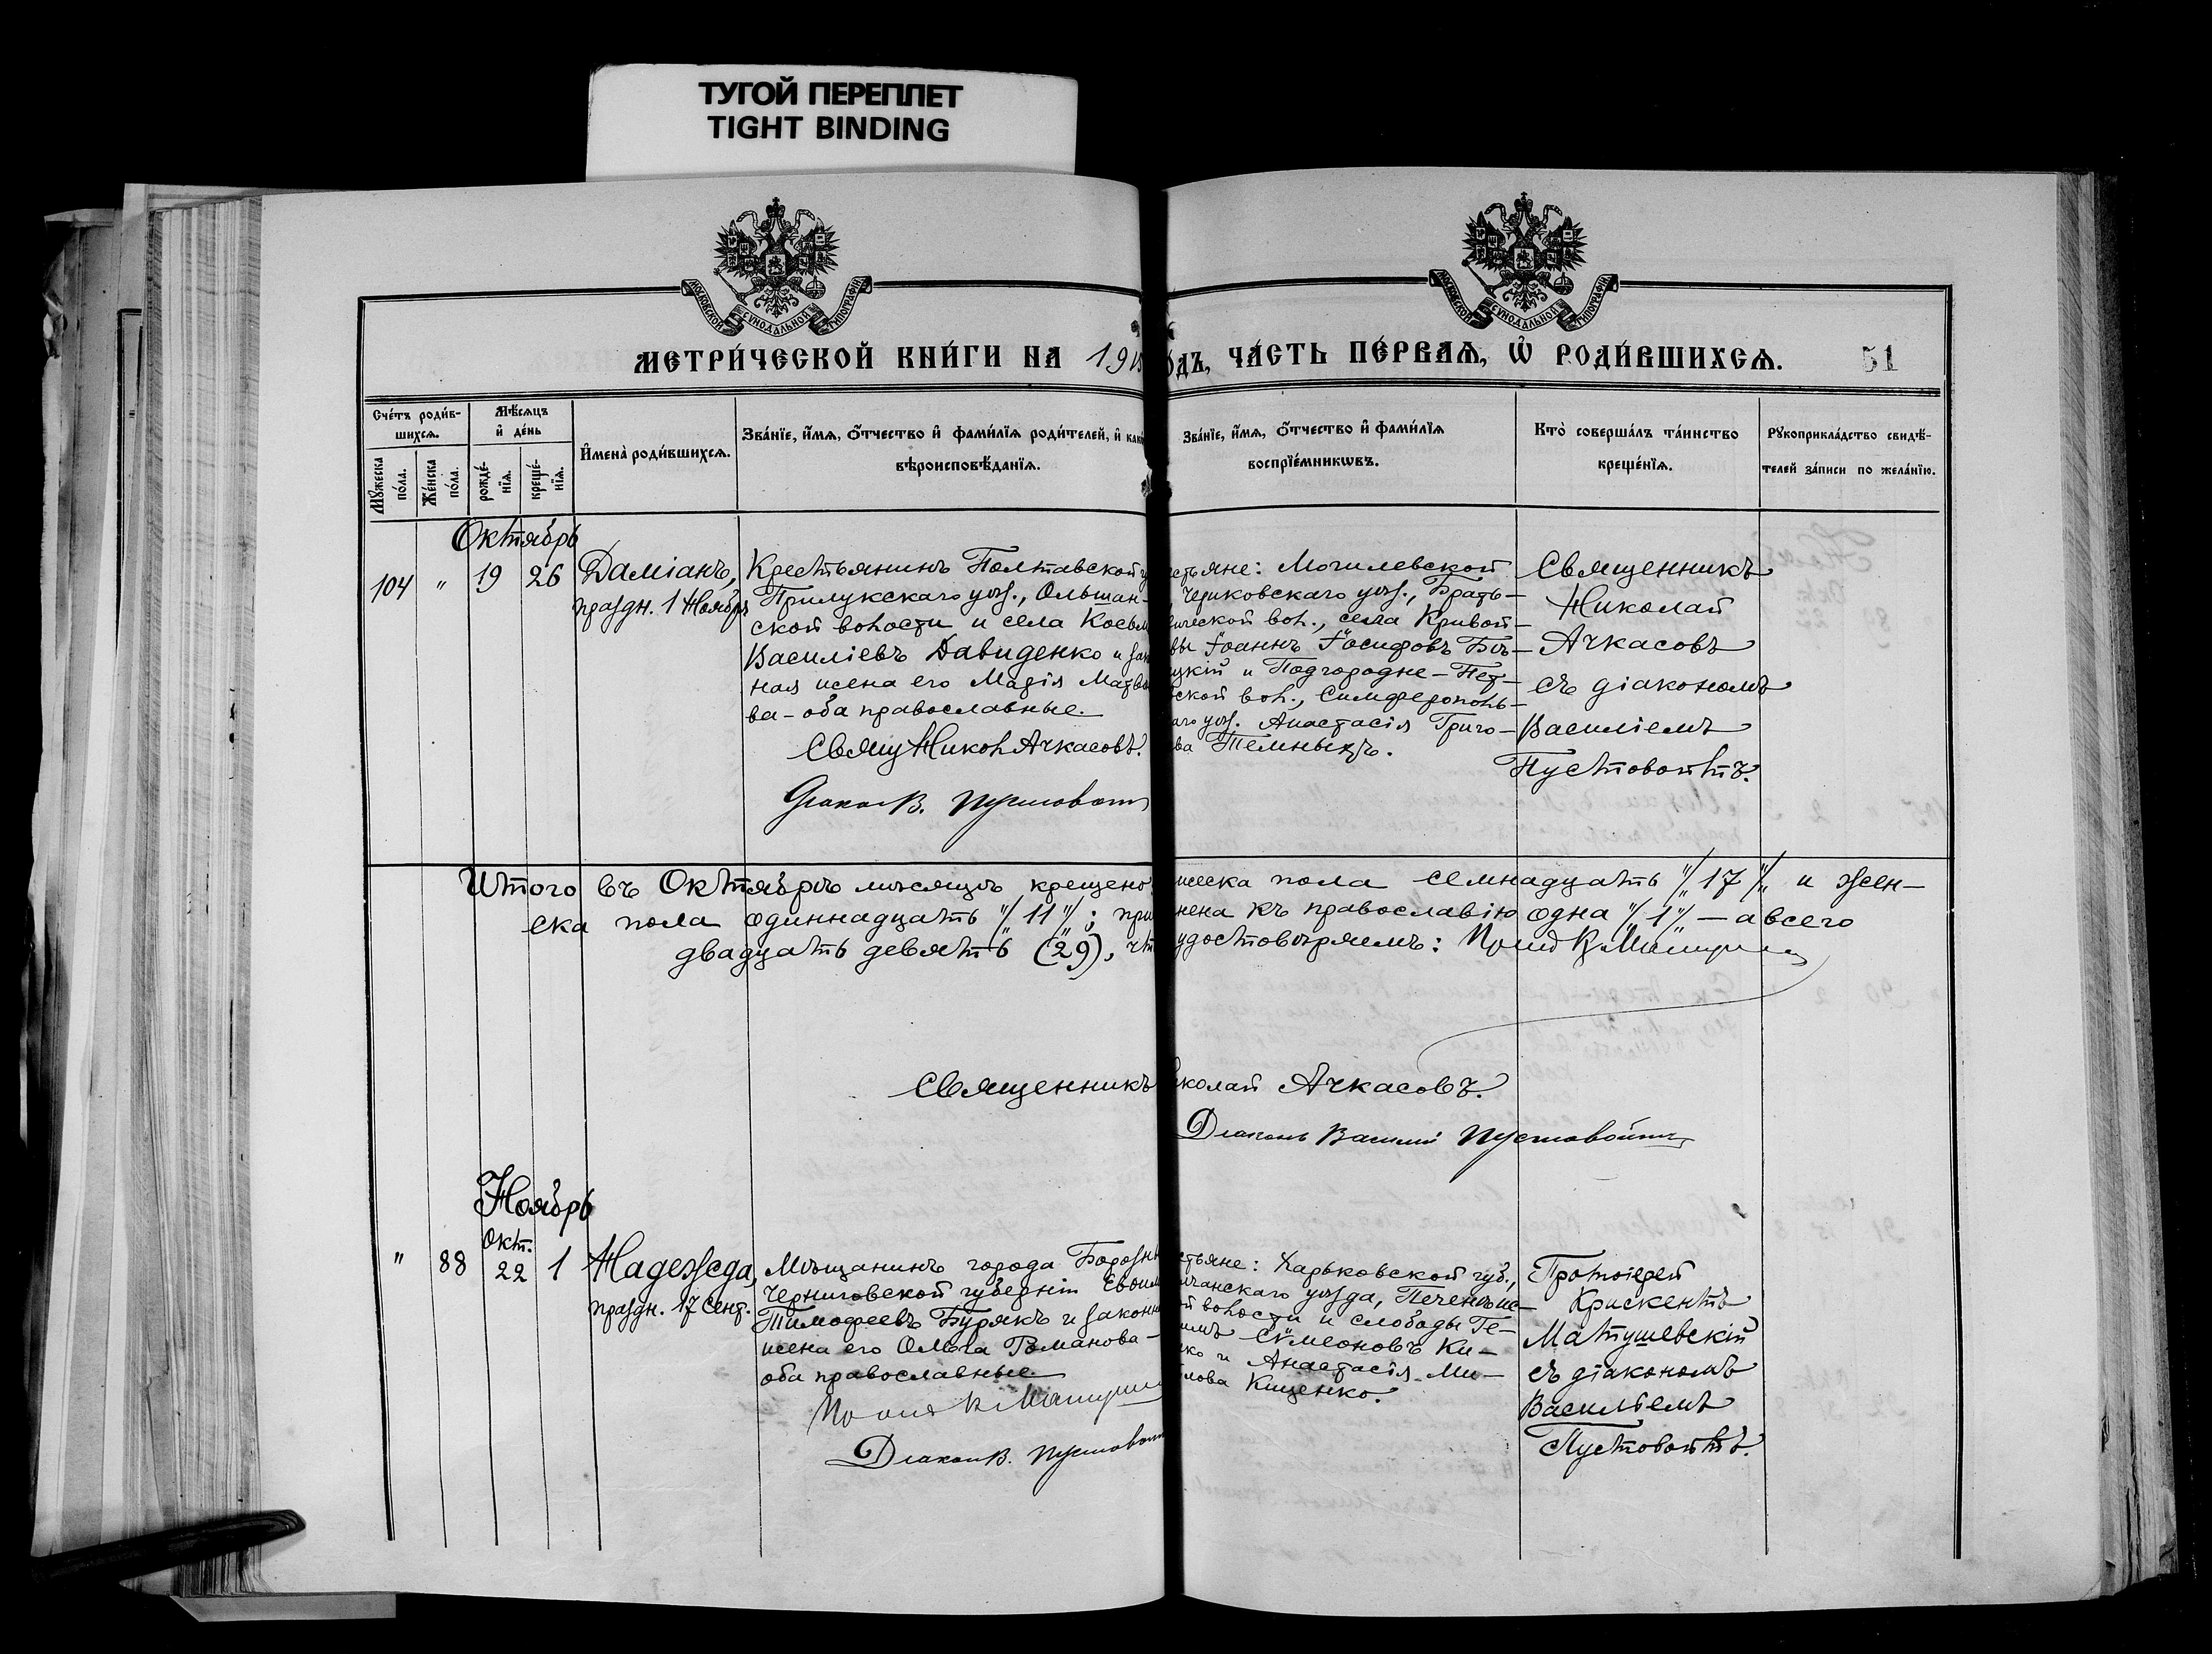 ТУГОЙ ПЕРЕПЛЕТ
TIGHT BINDING
МОСКОВСКОЙ СѴНОДАЛЬНОЙ ТИПОГРАФІИ
МОСКОВСКОЙ СѴНОДАЛЬНОЙ ТИПОГРАФІИ
МЕТРИ́ЧЕСКОЙ КНИ́ГИ НА 191
ОДЪ, ЧА́СТЬ ПЕ́РВАѦ, Ѡ҆ РОДИ́ВШИХСѦ.
51
Сче́тъ роди́в-
шихсѧ.
Мꙋ́жеска по́ла.
Же́нска по́ла.
Мѣ́сѧцъ
и҆ де́нь
рожде́-
нїѧ.
креще́-
нїѧ.
И҆мена̀ роди́вшихсѧ.
Зва́нїе, и҆́мѧ, ѻ҆́тчество и҆ фами́лїѧ роди́телей, и҆ как
вѣроисповѣ́данїѧ.
Зва́нїе, и҆́мѧ, ѻ҆́тчество и҆ фами́лїѧ
воспрїе́мникѡвъ.
Кто̀ соверша́лъ та́инство
креще́нїѧ.
Рꙋкоприкла́дство свидѣ́-
телей за́писи по жела́нїю.
Октябрь
104 " 19 26
Даміанъ,
праздн. 1 Ноября
Крестьянинъ Полтавской г
Прилукскаго уѣз., Ольшан-
ской волости и села
Василіевъ Давиденко и зак
ная жена его Марія Матв
ва - оба православные.
Свящ Никол Ачкасовъ.
Діакон В. Пустовойт
стьяне: Могилевской
Чериковскаго уѣз., Брать-
ической вол., села Кривой-
вы Іоаннъ Іосифовъ Бѣ-
цкій и Подгородне-Пет-
ской вол., Симферополь-
аго уѣз. Анастасія Григо-
ва Темныхъ.
Священникъ
Николай
Ачкасовъ
съ діакономъ
Василіемъ
Пустовойтъ.
Итого въ Октябрѣ мѣсяцѣ крещено
жеска пола семнадцать "/17/" и жен-
ска пола одиннадцать "/11"/; при
нена къ православію одна "/1"/ - а всего
двадцать девять (29), чт
удостовѣряемъ:
Священникъ
иколай Ачкасовъ.
Діаконъ Василій Пустовойтъ
Ноябрь
Окт.
" 88 22 1
Надежда,
праздн. 17 Сент.
Мѣщанинъ города Борозн
Черниговской губерніи Евѳим
Тимофеевъ Бурякъ и законн
жена его Ольга Романова -
оба православные.
Діакон В. Пустовойт
стьяне: Харьковской губ.,
лчанскаго уѣзда, Печенѣж-
ой волости и слободы Ге-
имъ Сѵмеоновъ Ки-
ко и Анастасія Ми-
лова Кищенко.
Протоіерей
Крискентъ
Матушевскій
съ діакономъ
Васильемъ
Пустовойтъ.